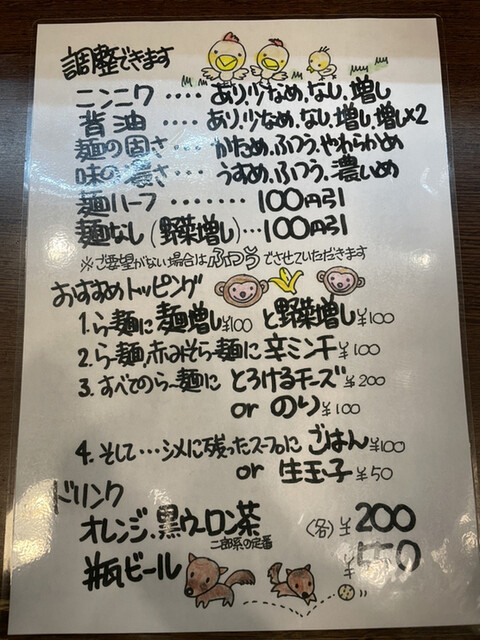 調整できます
ニンニク ・・・・ あり,少なめ,なし,増し
背油 ・・・・ あり,少なめ,なし,増し,増し×2
麺の固さ ・・・ かため,ふつう,やわらかめ
味の濃さ ・・・ うすめ,ふつう,濃いめ
麺ハーフ ・・・・・・・ 100円引
麺なし(野菜増し)・・・100円引
※ご要望がない場合は ふつう でさせていただきます
おすすめトッピング
1.らー麺に 麺増し¥100 と野菜増し¥100
2.らー麺,赤みそらー麺に 辛ミンチ¥100
3.すべてのらー麺に とろけるチーズ¥200
or のり¥100
4.そして・・・シメに残ったスープに ごはん¥100
or 生玉子¥50
ドリンク
オレンジ、黒ウーロン茶 (各)¥200
二郎系の定番
瓶ビール ¥550